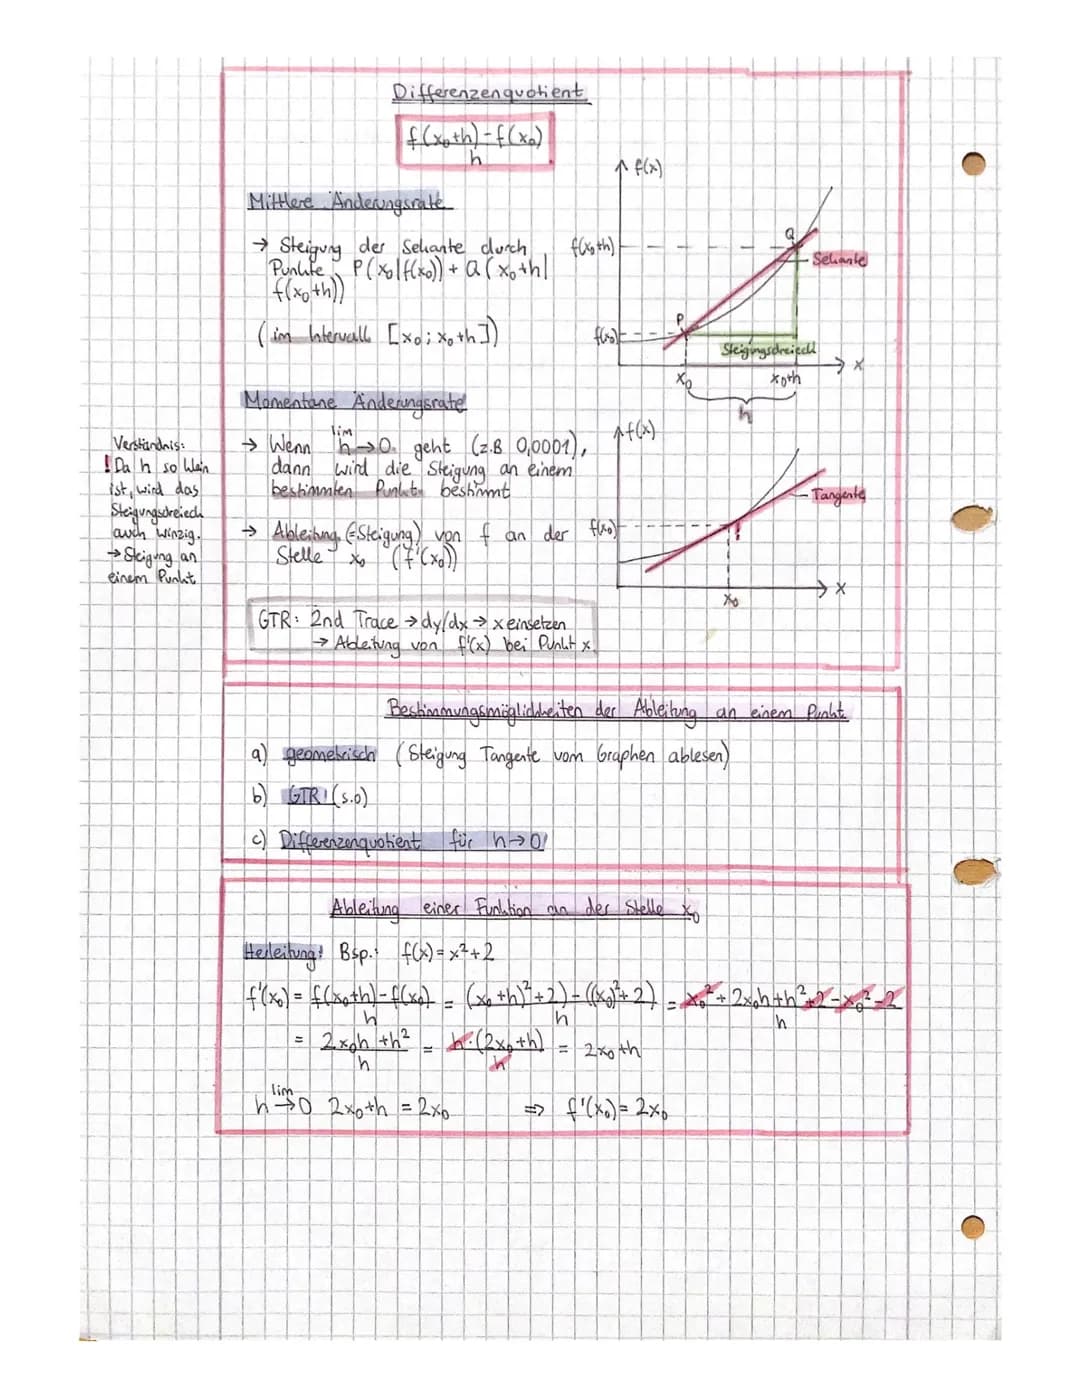 Differenzenquotient
f(x₀+h)-f(x₀)
h
Mittlere Änderungsrate
→ Steigung der Sekante durch
Punkte P(x₀|f(x₀)) + Q(x₀+h|
f(x₀+h))
(im Intervall [x₀; x₀+h])
f(x)
f(x₀+h)
Q
Sekante
P
f(x₀)
Steigungsdreieck
x
x₀
x₀+h
h
Momentane Änderungsrate
→ Wenn lim h→0 geht (z.B 0,0001),
dann wird die Steigung an einem
bestimmten Punkt bestimmt
→ Ableitung (=Steigung) von f an der
Stelle x₀ (f'(x₀))
Verständnis:
! Da h so klein
ist, wird das
Steigungsdreieck
auch winzig.
→ Steigung an
einem Punkt
f(x)
Tangente
f(x₀)
!
x
x₀
GTR: 2nd Trace → dy/dx → x einsetzen
→ Ableitung von f'(x) bei Punkt x
Bestimmungsmöglichkeiten der Ableitung an einem Punkt
a) geometrisch (Steigung Tangente vom Graphen ablesen)
b) GTR (s.o)
c) Differenzenquotient für h→0
Ableitung einer Funktion an der Stelle x₀
Herleitung: Bsp.: f(x)=x²+2
f'(x₀) = f(x₀+h)-f(x₀) / h = (x₀+h)²+2)-((x₀)²+2) / h = x₀²+2x₀h+h²+2-x₀²-2 / h
= 2x₀h+h² / h = h·(2x₀+h) / h = 2x₀+h
lim h→0 2x₀+h = 2x₀ ⇒ f'(x₀)= 2x₀